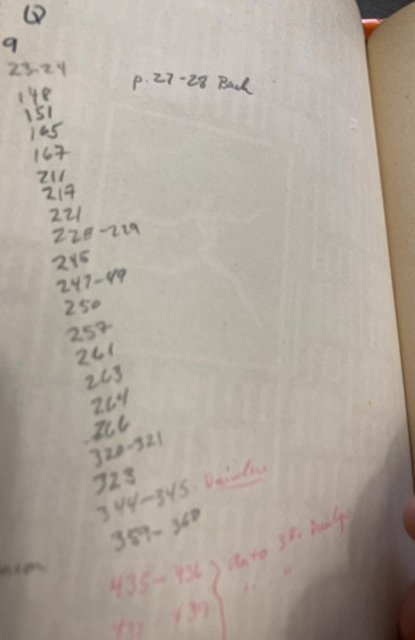 Q
9
23-24
p. 27-28 Bach
148
151
165
167
211
217
221
228-229
245
247-49
250
257
261
263
264
266
320-321
323
344-345
359-360
435-436